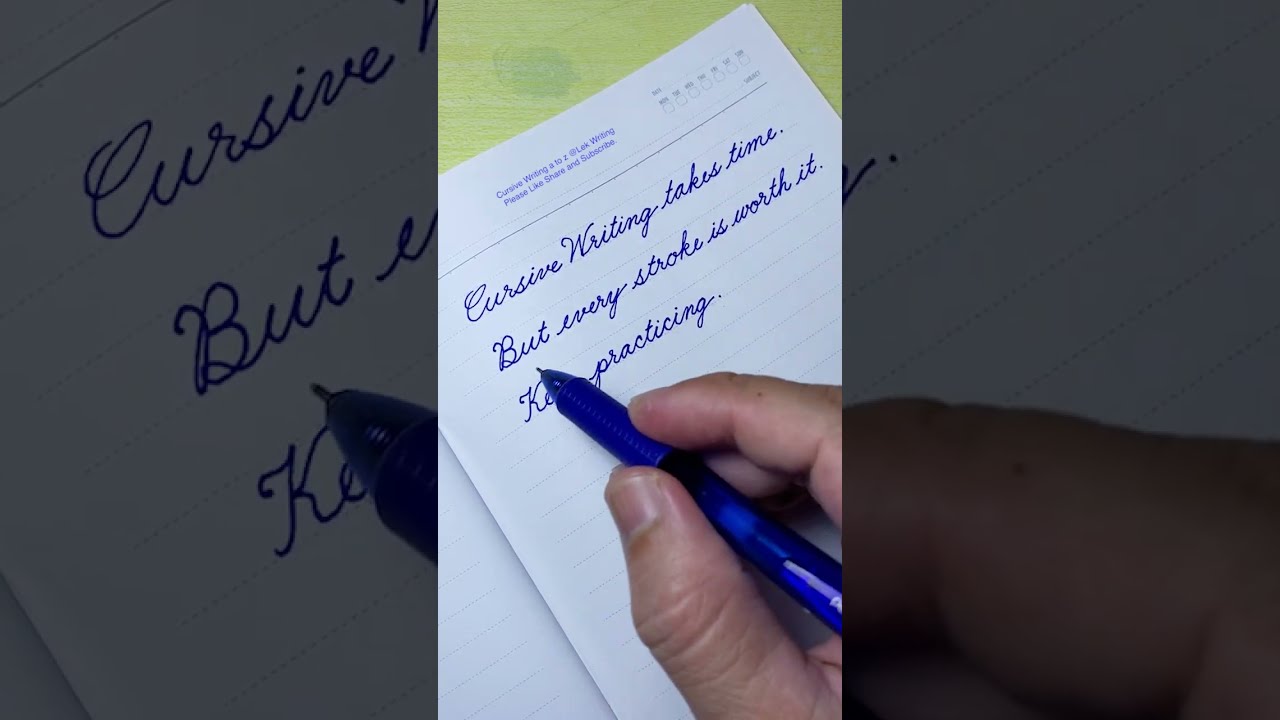 DATE
MON TUE WED THU FRI SAT SUN
SUBJECT
Cursive Writing a to z @Lek Writing
Please Like Share and Subscribe.
Cursive Writing takes time.
But every stroke is worth it.
practicing.